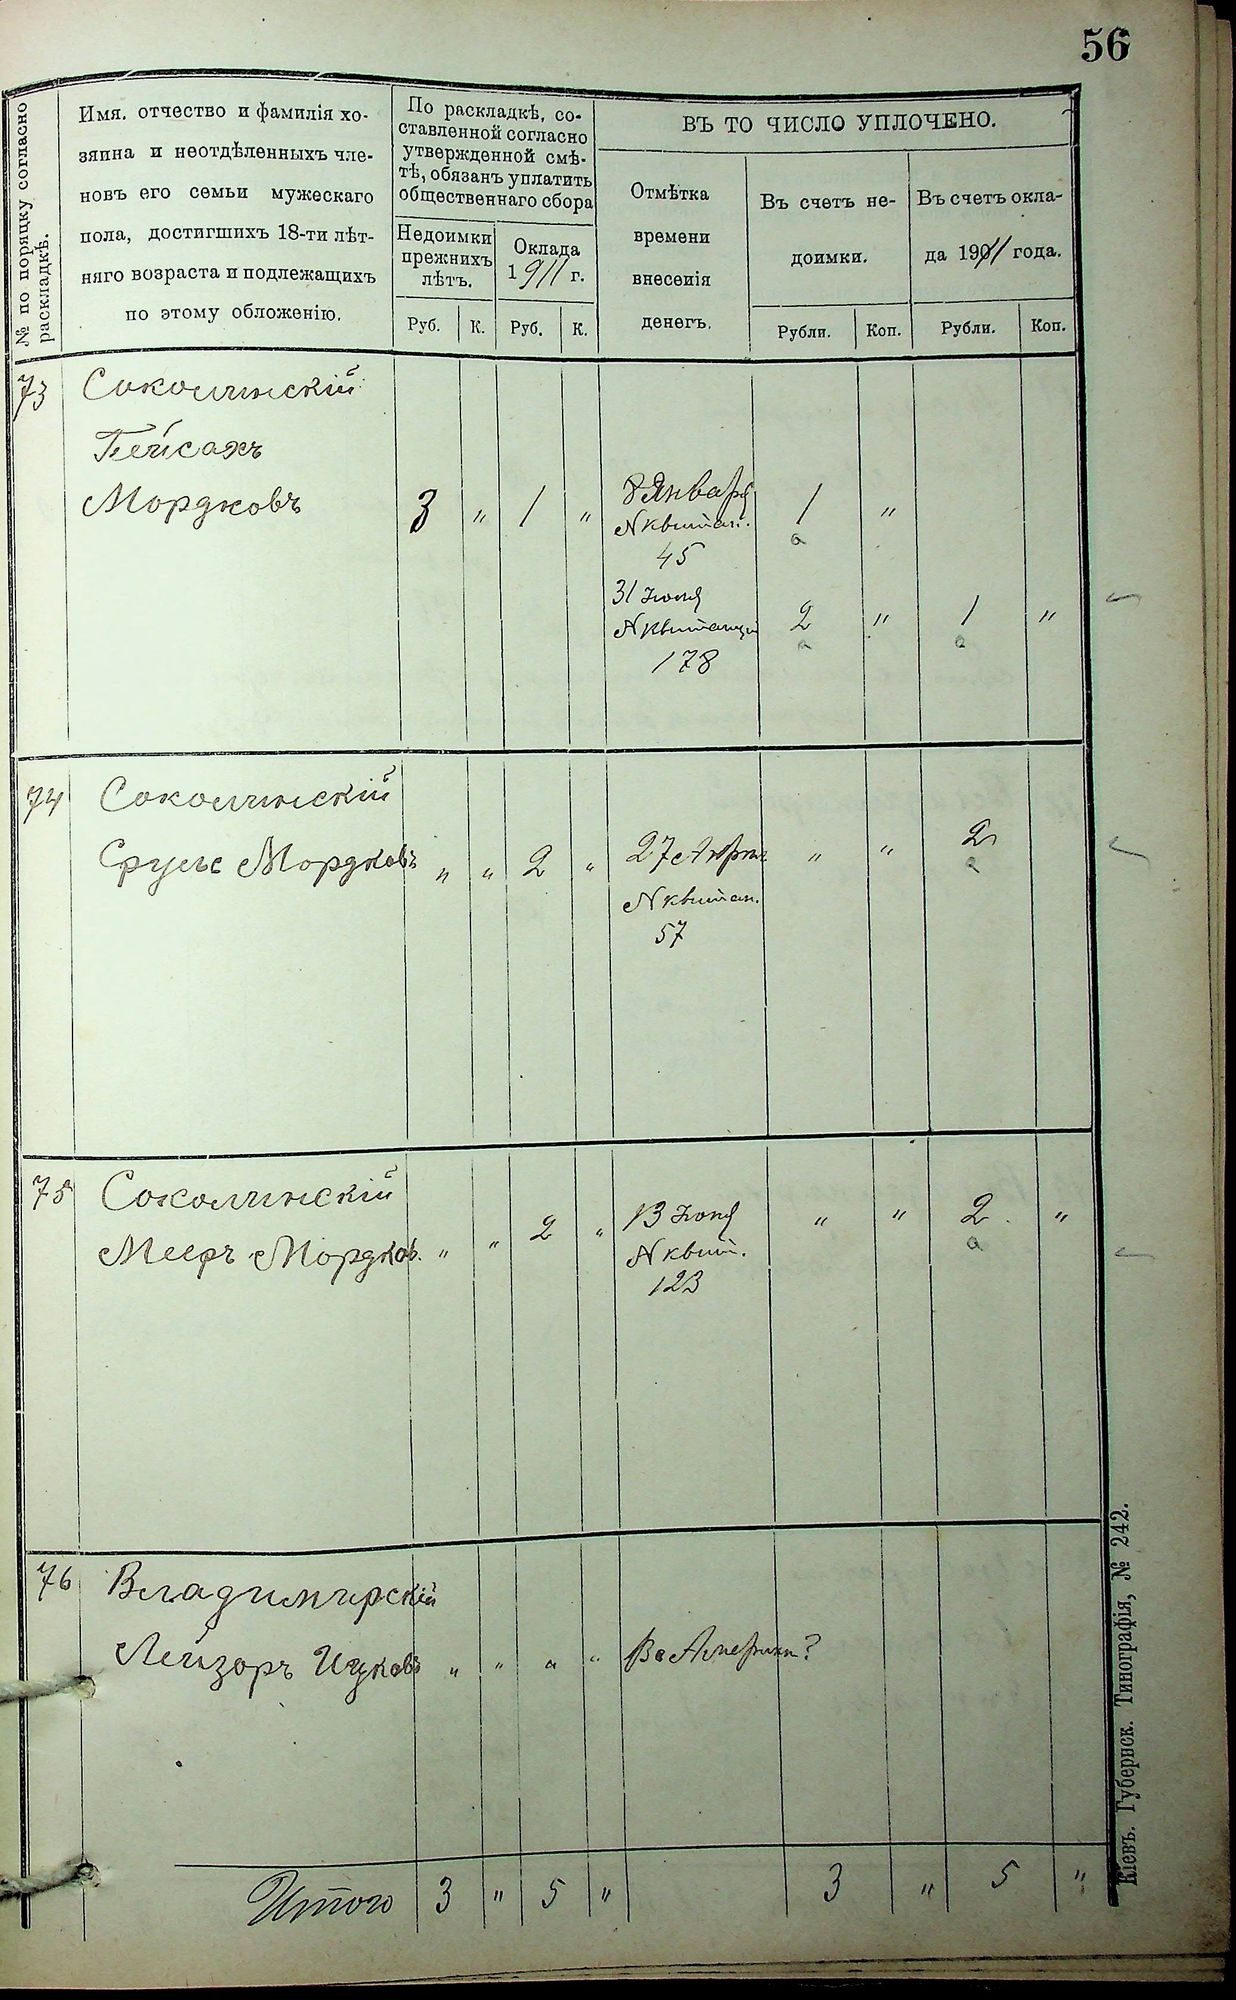 56
№ по порядку согласно
раскладкѣ.
Имя, отчество и фамилія хо-
зяина и неотдѣленныхъ чле-
новъ его семьи мужескаго
пола, достигшихъ 18-ти лѣт-
няго возраста и подлежащихъ
по этому обложенію.
По раскладкѣ, со-
ставленной согласно
утвержденной смѣ-
тѣ, обязанъ уплатить
общественнаго сбора
Недоимки
прежнихъ
лѣтъ.
Оклада
1911 г.
Руб. К. Руб. К.
ВЪ ТО ЧИСЛО УПЛОЧЕНО.
Отмѣтка
времени
внесенія
денегъ.
Въ счетъ не-
доимки.
Въ счетъ окла-
да 1911 года.
Рубли. Коп. Рубли. Коп.
73 Соколинскій
Пейсахъ
Мордковъ 3 " 1 " 8 Января 1 "
№ квитан.
45
31 Іюня 2 " 1 "
№ квитанціи
178
74 Соколинскій
Сруль Мордковъ " " 2 " 27 Апрѣля " " 2
№ квитан.
57
75 Соколинскій
Мееръ Мордков. " " 2 " 13 Іюня " " 2 "
№ квит.
123
76 Владимирскій
Лейзоръ Ицковъ " " " " Въ Америкѣ?
Итого 3 " 5 " 3 " 5 "
Кіевъ. Губернск. Типографія, № 242.